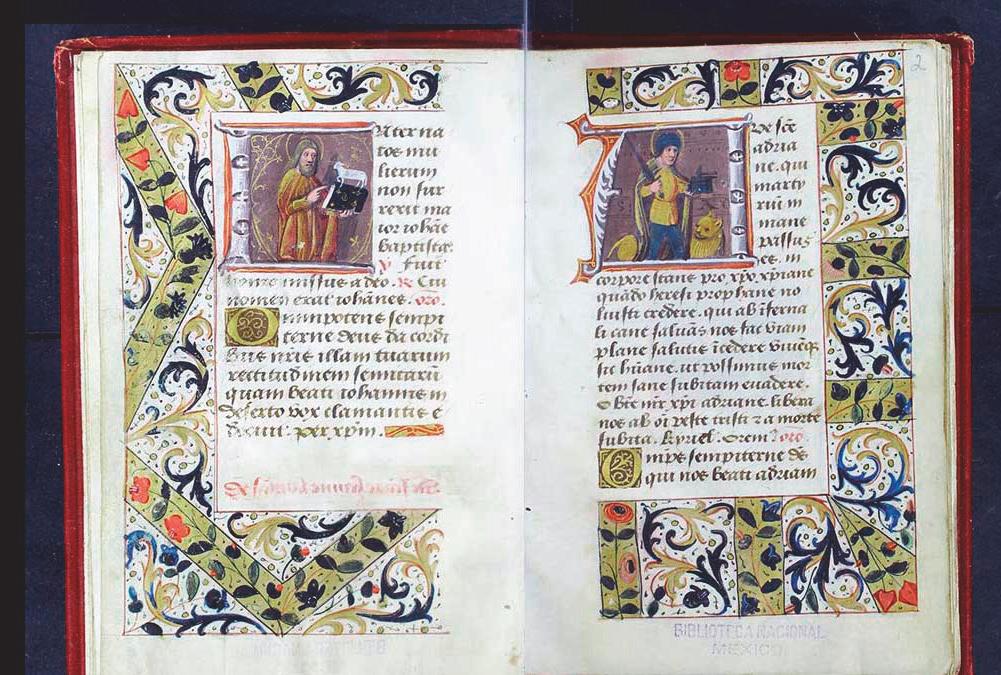 Nter na
tos mu
lierum
non sur
rexit ma
ior iohãe
baptista.
v Fuit
homo missus a deo. R Cui
nomen erat iohãnes. oro.
Omnipotens sempi
terne deus da cordi
bus nris illam tuarum
rectitudinem semitarũ
quam beati iohannis in
deserto vox clamantis e
docuit. per xpm.
2
Ve sce
adria
ne. qui
marty
riũ in
mane
passus
es. in
corpore stans pro xpo xpiane
quãdo heresi prophane no
luisti credere. qui ab iferna
li cane saluãs nos fac viam
plane salutis icedere viuẽq
sic hũane. ut possimus mor
tem sane subitam euadere.
O bte mr xpi adriane. libera
nos ab oi peste tristi z a morte
subita. kyriel. Orem oro
Omps sempiterne ds
qui nos beati adriani
BIBLIOTECA NACIONAL
MEXICO